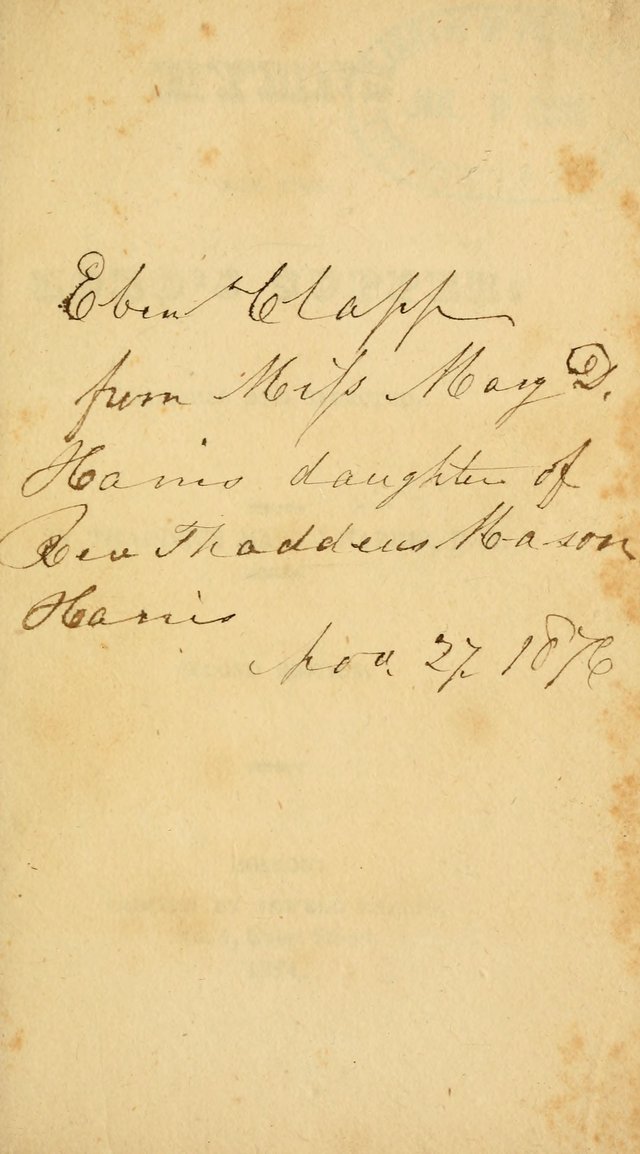 Eben Clapp
from Miſs Mary D.
Harris daughter of
Rev Thaddeus Mason
Harris
Nov. 27, 1876